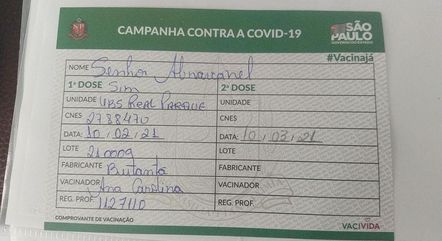 CAMPANHA CONTRA A COVID-19
SÃO PAULO
GOVERNO DO ESTADO
#Vacinajá
NOME Senhor Abravanel
1ª DOSE Sim
2ª DOSE
UNIDADE UBS REAL PARQUE
UNIDADE
CNES 2788470
CNES
DATA: 10/02/21
DATA: 10/03/21
LOTE
LOTE
FABRICANTE Butantã
FABRICANTE
VACINADOR Ana Carolina
VACINADOR
REG. PROF. 1127110
REG. PROF.
COMPROVANTE DE VACINAÇÃO
VACIVIDA